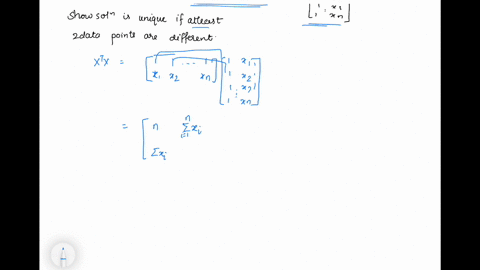 1 x2
1 xn
Show solⁿ is unique if atleast
2 data points are different
XᵀX = [1 1 ... 1 x1 x2 xn] [1 x1 1 x2 1 x3 ⋮ 1 xn]
= [n Σⁿᵢ₌₁ xi
Σxi